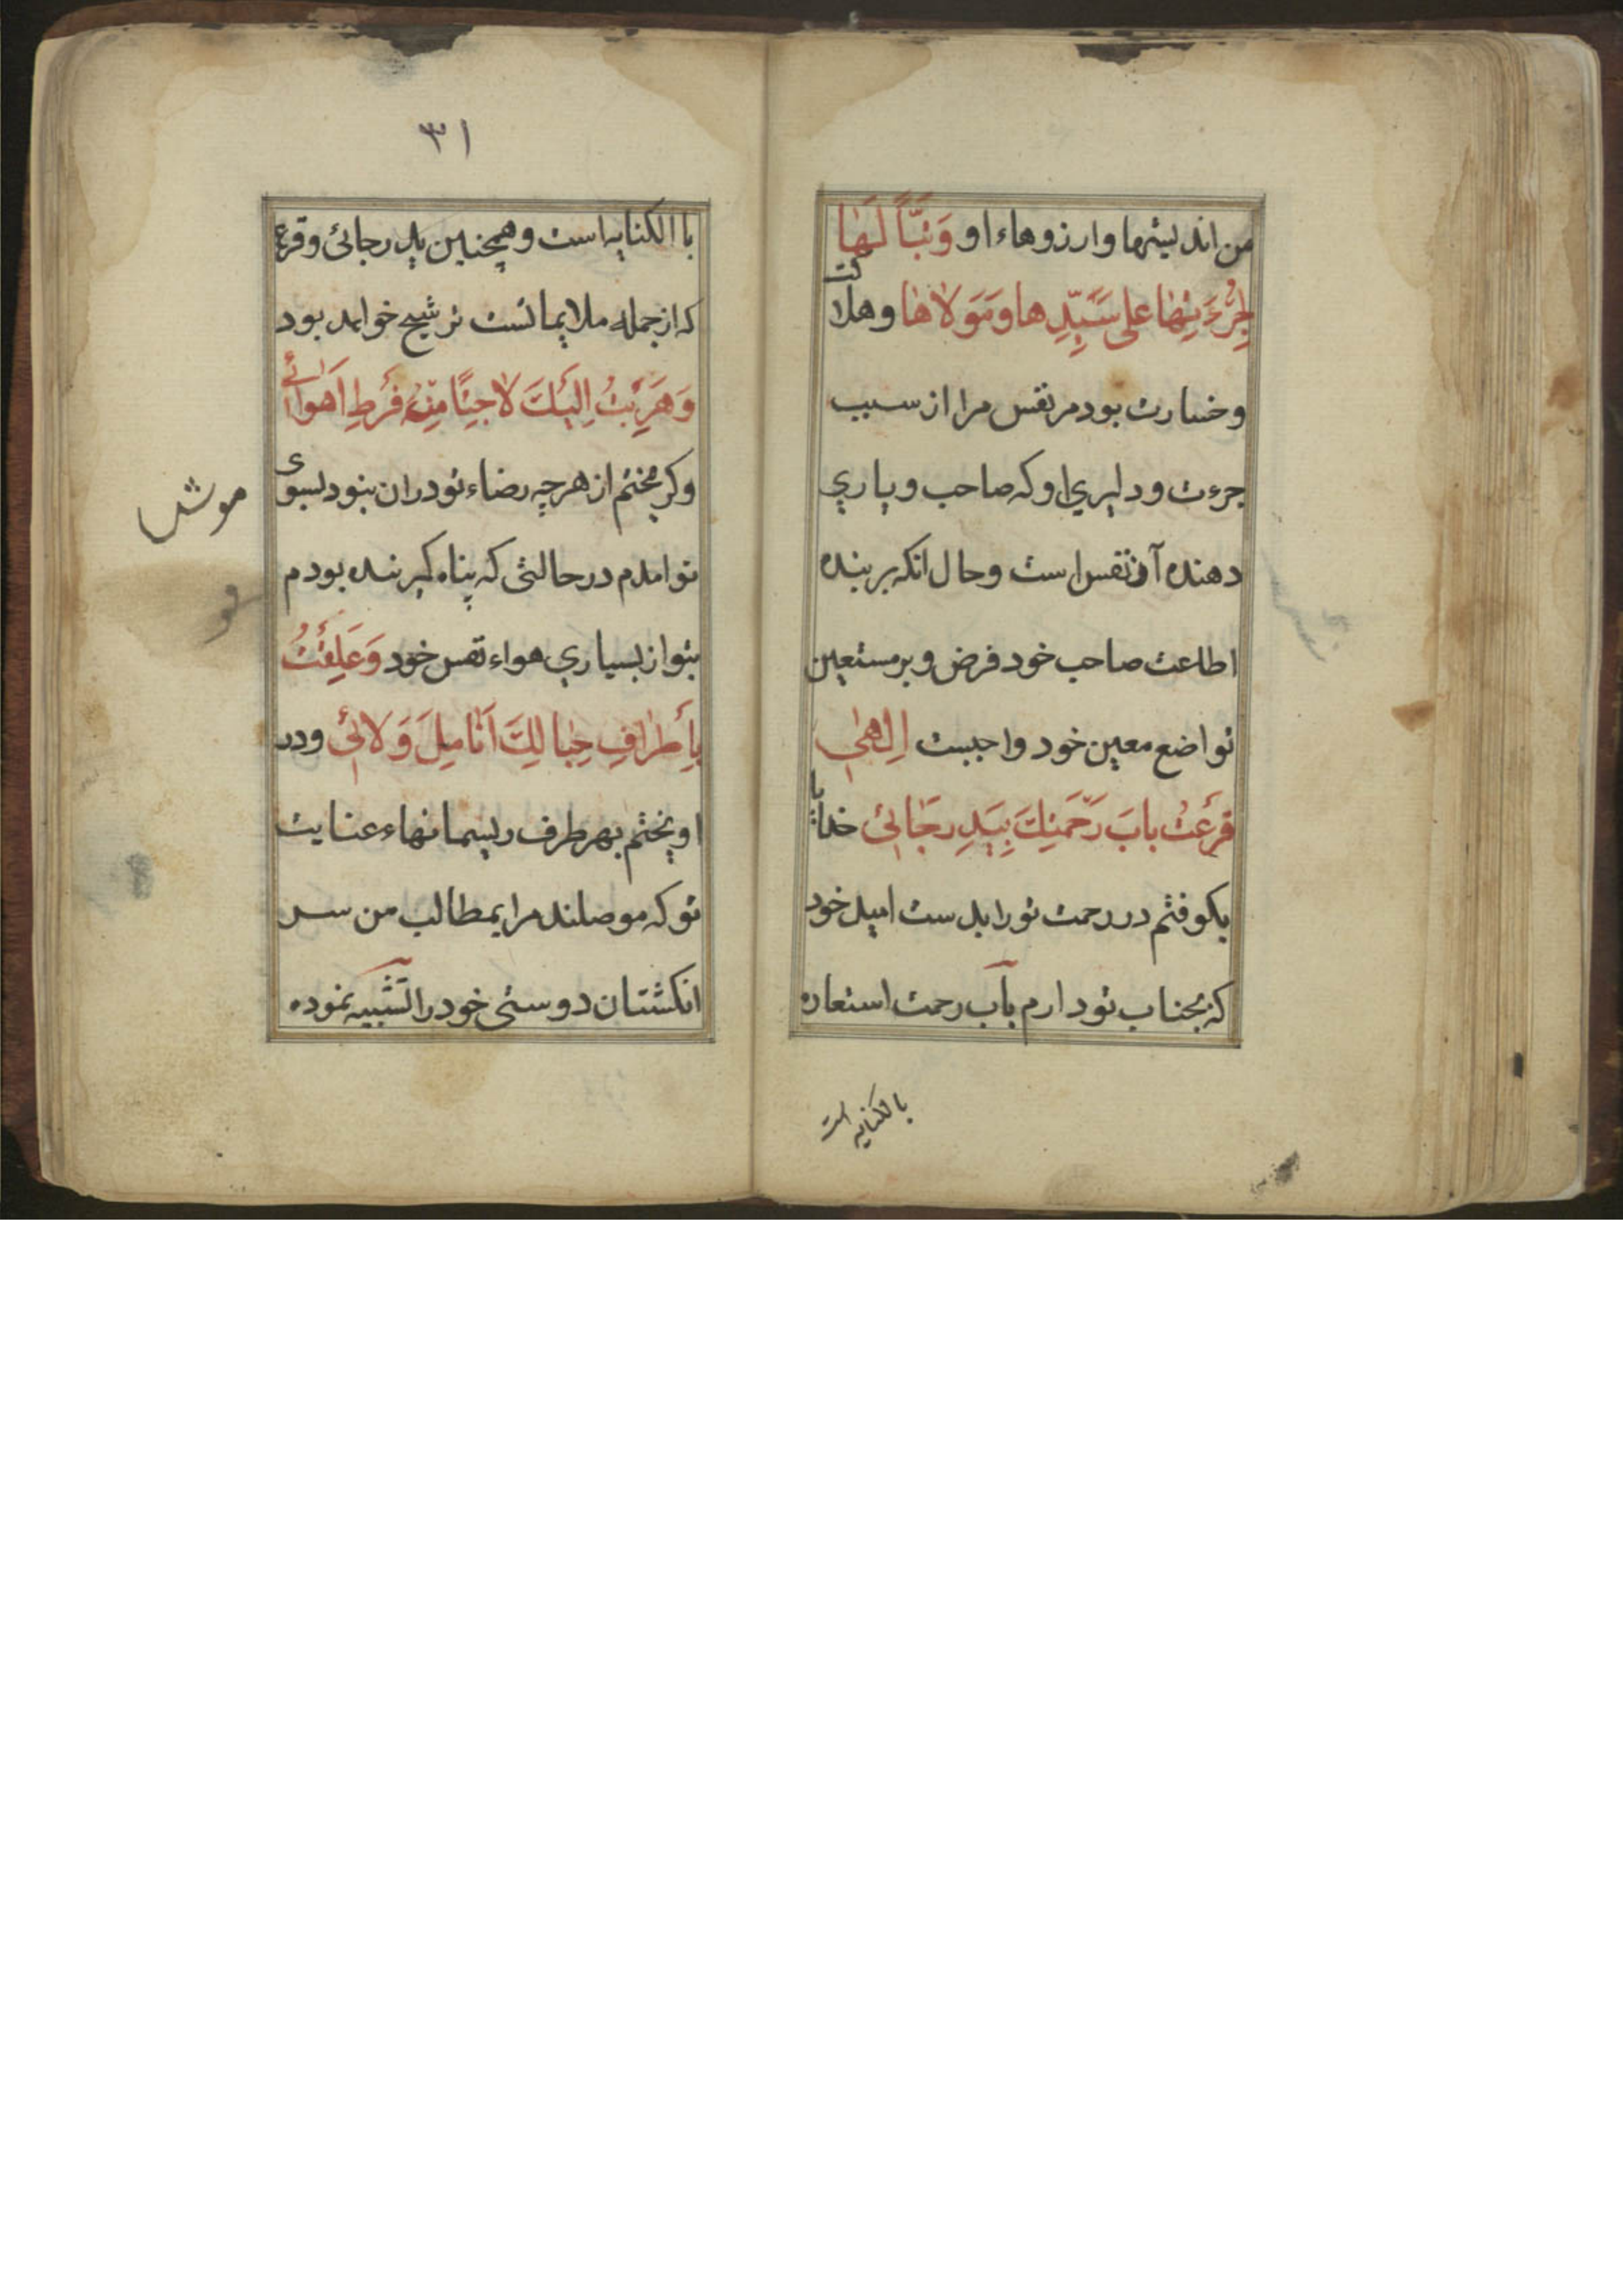 من اندیشها و ارزوهاء او وَتَبّاً لَهٰا
لِجُرْءَتِهٰا عَلىٰ سَيِّدِهٰا وَمَوْلاهٰا وهلاکت
وخسارت بود مر نفس مرا از سبب
جرءت ودلیري او که صاحب ویاري
دهنده آن نفس است وحال انکه بر بنده
اطاعت صاحب خود فرض وبر مستعین
تواضع معین خود واجبست اِلٰهٰي
قَرَعْتُ بابَ رَحْمَتِكَ بِيَدِ رَجٰائي خدایا
بکوفتم در رحمت تو را بدست امید خود
که بجناب تو دارم باب رحمت استعاره
بالکنایه است
٣١
با الکنایه است وهمچنین ید رجائی وقرع
که از جمله ملایماتست ترشیح خواهد بود
وَهَرَبْتُ اِلَيْكَ لاجِئًا مِنْ فَرْطِ اَهْوٰائي
وکریختم از هرچه رضاء تو در ان نبود بسوی
تو امدم در حالتی که پناه کیرنده بودم
بتو از بسیاري هواء نفس خود وَعَلَّقْتُ
بِأَطْرٰافِ حِبٰالِكَ اَنٰامِلَ وَلائي ودر
اویختم بهر طرف ریسمانهاء عنایت
تو که موصلند مرا بمطالب من سر
انکشتان دوستی خود را تشبیه نموده
موش
مو